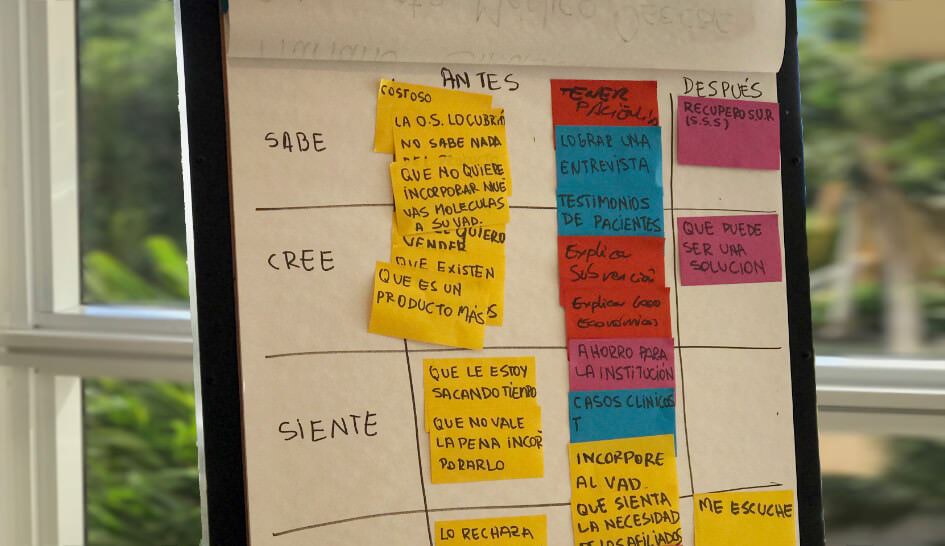 ANTES
DESPUÉS
SABE
COSTOSO
LA O.S. LO CUBRIRÍA
NO SABE NADA
QUE NO QUIERE
INCORPORAR NUE
VAS MOLECULAS
A SU VAD.
TENER
PACIENCIA
LOGRAR UNA
ENTREVISTA
TESTIMONIOS
DE PACIENTES
RECUPERO S.U.R
(S.S.S)
CREE
QUIERO
VENDER
QUE EXISTEN
QUE ES UN
PRODUCTO MÁS
Explicar
Subvención
Explicar
Económicos
QUE PUEDE
SER UNA
SOLUCION
SIENTE
QUE LE ESTOY
SACANDO TIEMPO
QUE NO VALE
LA PENA INCOR
PORARLO
AHORRO PARA
LA INSTITUCIÓN
CASOS CLINICOS
T
INCORPORE
AL VAD.
QUE SIENTA
LA NECESIDAD
AFILIADOS
LO RECHAZA
ME ESCUCHE